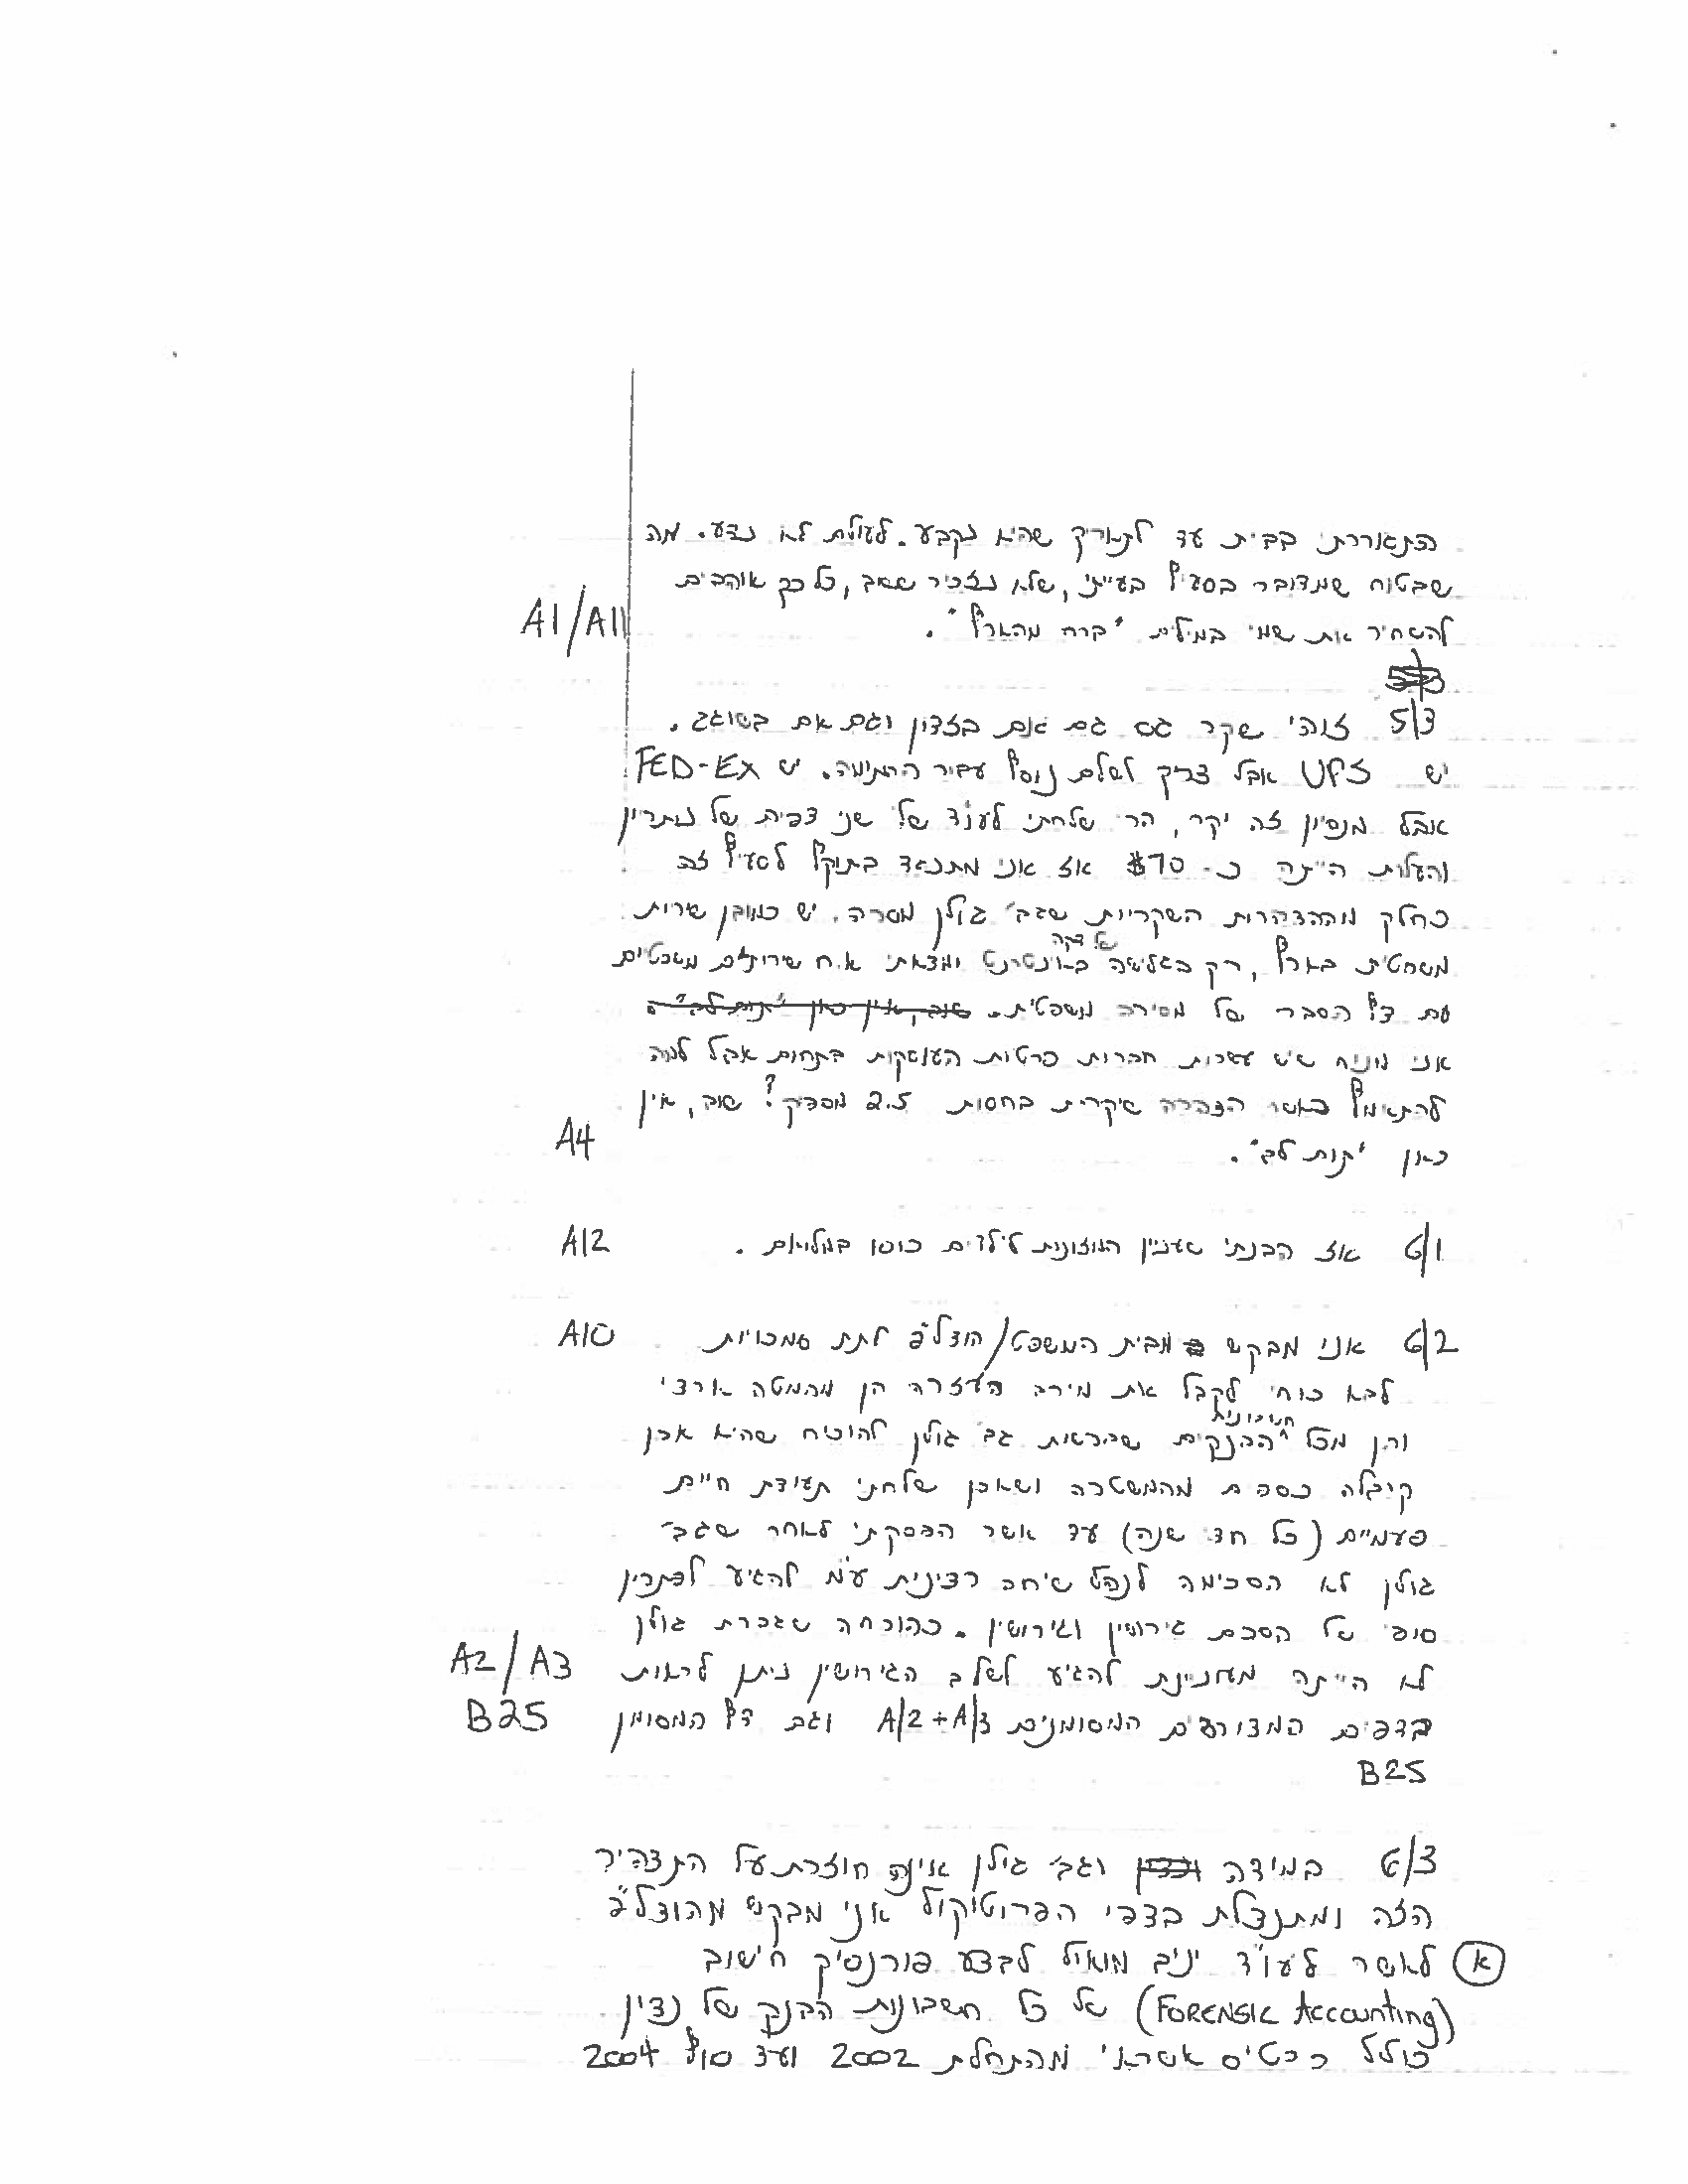 התגוררתי בבית עד לתאריך שהיא נקבע. לעולם לא נדע. מה
שבטוח שמדובר בסעיף בעייתי, שלא נזכיר שאב, כל כך אוהבים
להשחיר את שמי במילים "ברח מהארץ".
A1/A11
5/3
5/3 זוהי שקר גס גם אם בזדון וגם אם בשוגג.
יש UPS אבל צריך לשלם נוסף עבור החתימה. יש FED-EX
אבל מנסיון זה יקר, הרי שלחתי לעו"ד שלי שני דפים של נותריון
והעלות הייתה כ- $70 אז אני מתנגד בתוקף לסעיף זה
כחלק מההצהרות השקריות שגב' גולן מסרה. יש כמובן שירות
משפטית בארץ, רק בגלישה של דקה באינטרנט ומצאתי א.ח שירותים משפטים
עם דף הסבר של מסירה משפטית. שוב, אין כאן "תום לב".
אני מניח שיש עשרות חברות פרטיות העוסקות בתחום אבל למה
להתאמץ כאשר הצהרה שיקרית בחסות 2.5 מספיק? שוב, אין
כאן "תום לב".
A4
6/1 אז הבנתי שעניין המזונות לילדים כוסו במלואם.
A12
6/2 אני מבקש מבית המשפט/הוצל"פ לתת סמכויות
A10
לבא כוחי לקבל את מירב העזרה הן מהמטה ארצי
והן מכל חשבונות הבנקים שברשות גב' גולן להוכיח שהיא אכן
קיבלה כספים מהמשטרה ושאכן שלחתי תעודת חיים
פעמיים (כל חצי שנה) עד אשר הפסקתי לאחר שגב'
גולן לא הסכימה לנהל שיחה רצינית ע"מ להגיע לפתרון
סופי של הסכם גירושין וגירושין. כהוכחה שגברת גולן
לא הייתה מעוניינת להגיע לשלב הגירושין ניתן לראות
A2/A3
בדפים המצורפים המסומנים A/2+A/3 וגם דף המסומן
B25
B25
6/3 במידה וגב' גולן אינה חוזרת על התצהיר
הזה ומתנצלת בדפי הפרוטוקול אני מבקש מהוצל"פ
(א) לאשר לעו"ד יניב מואיל לבצע פורנסיק חישוב
(FORENSIC Accounting) של כל חשבונות הבנק של נדין
כולל כרטיס אשראי מהתחלת 2002 ועד סוף 2004